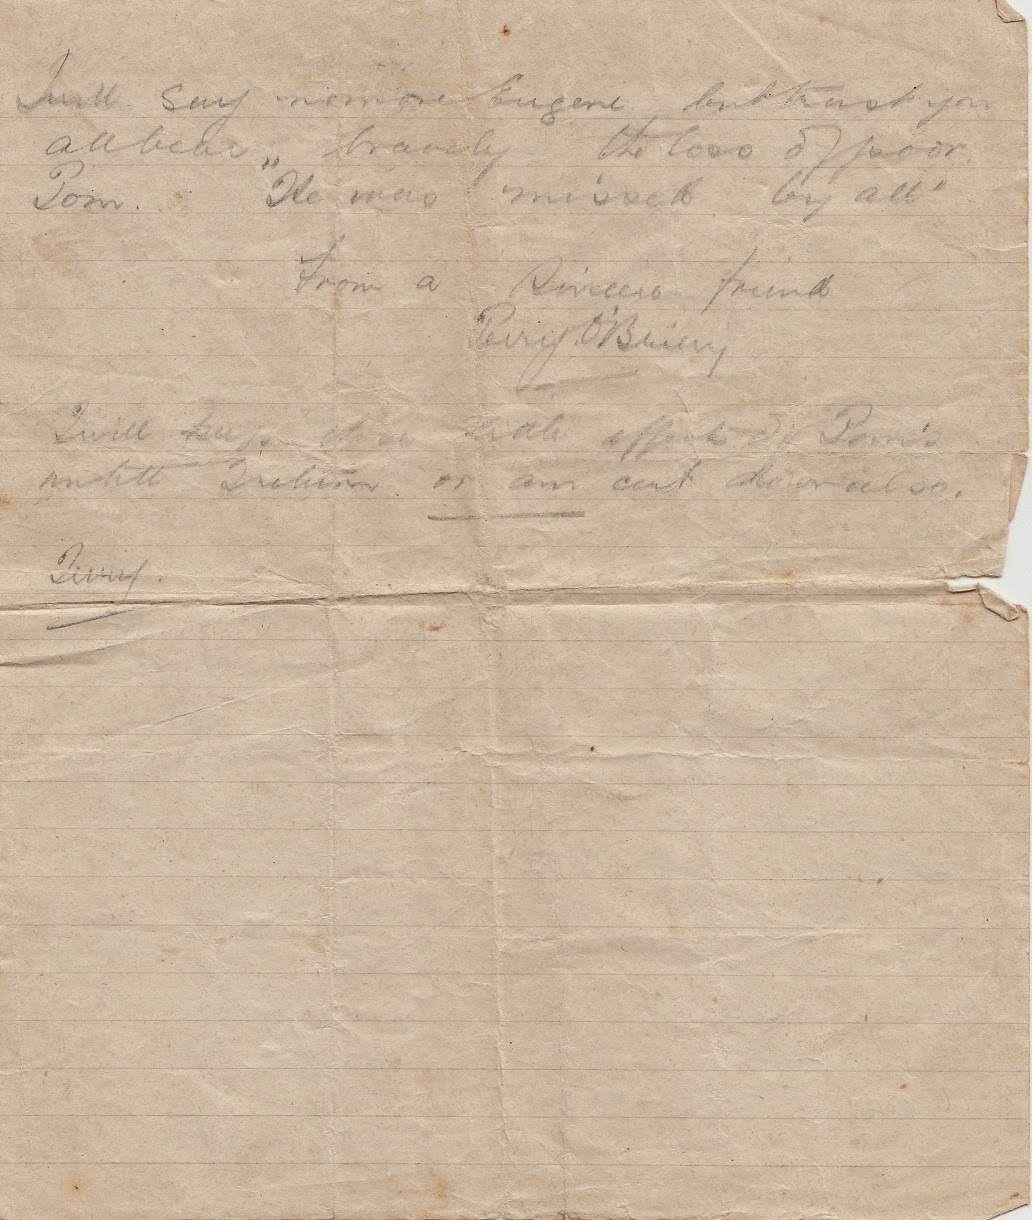 I will say no more Eugene but trust you
all bear bravely the loss of poor
Tom. "He was missed by all"
From a sincere friend
Terry. O'Brien
I will keep these little effects of Tom's
until I return or am cut down also.
Terry.